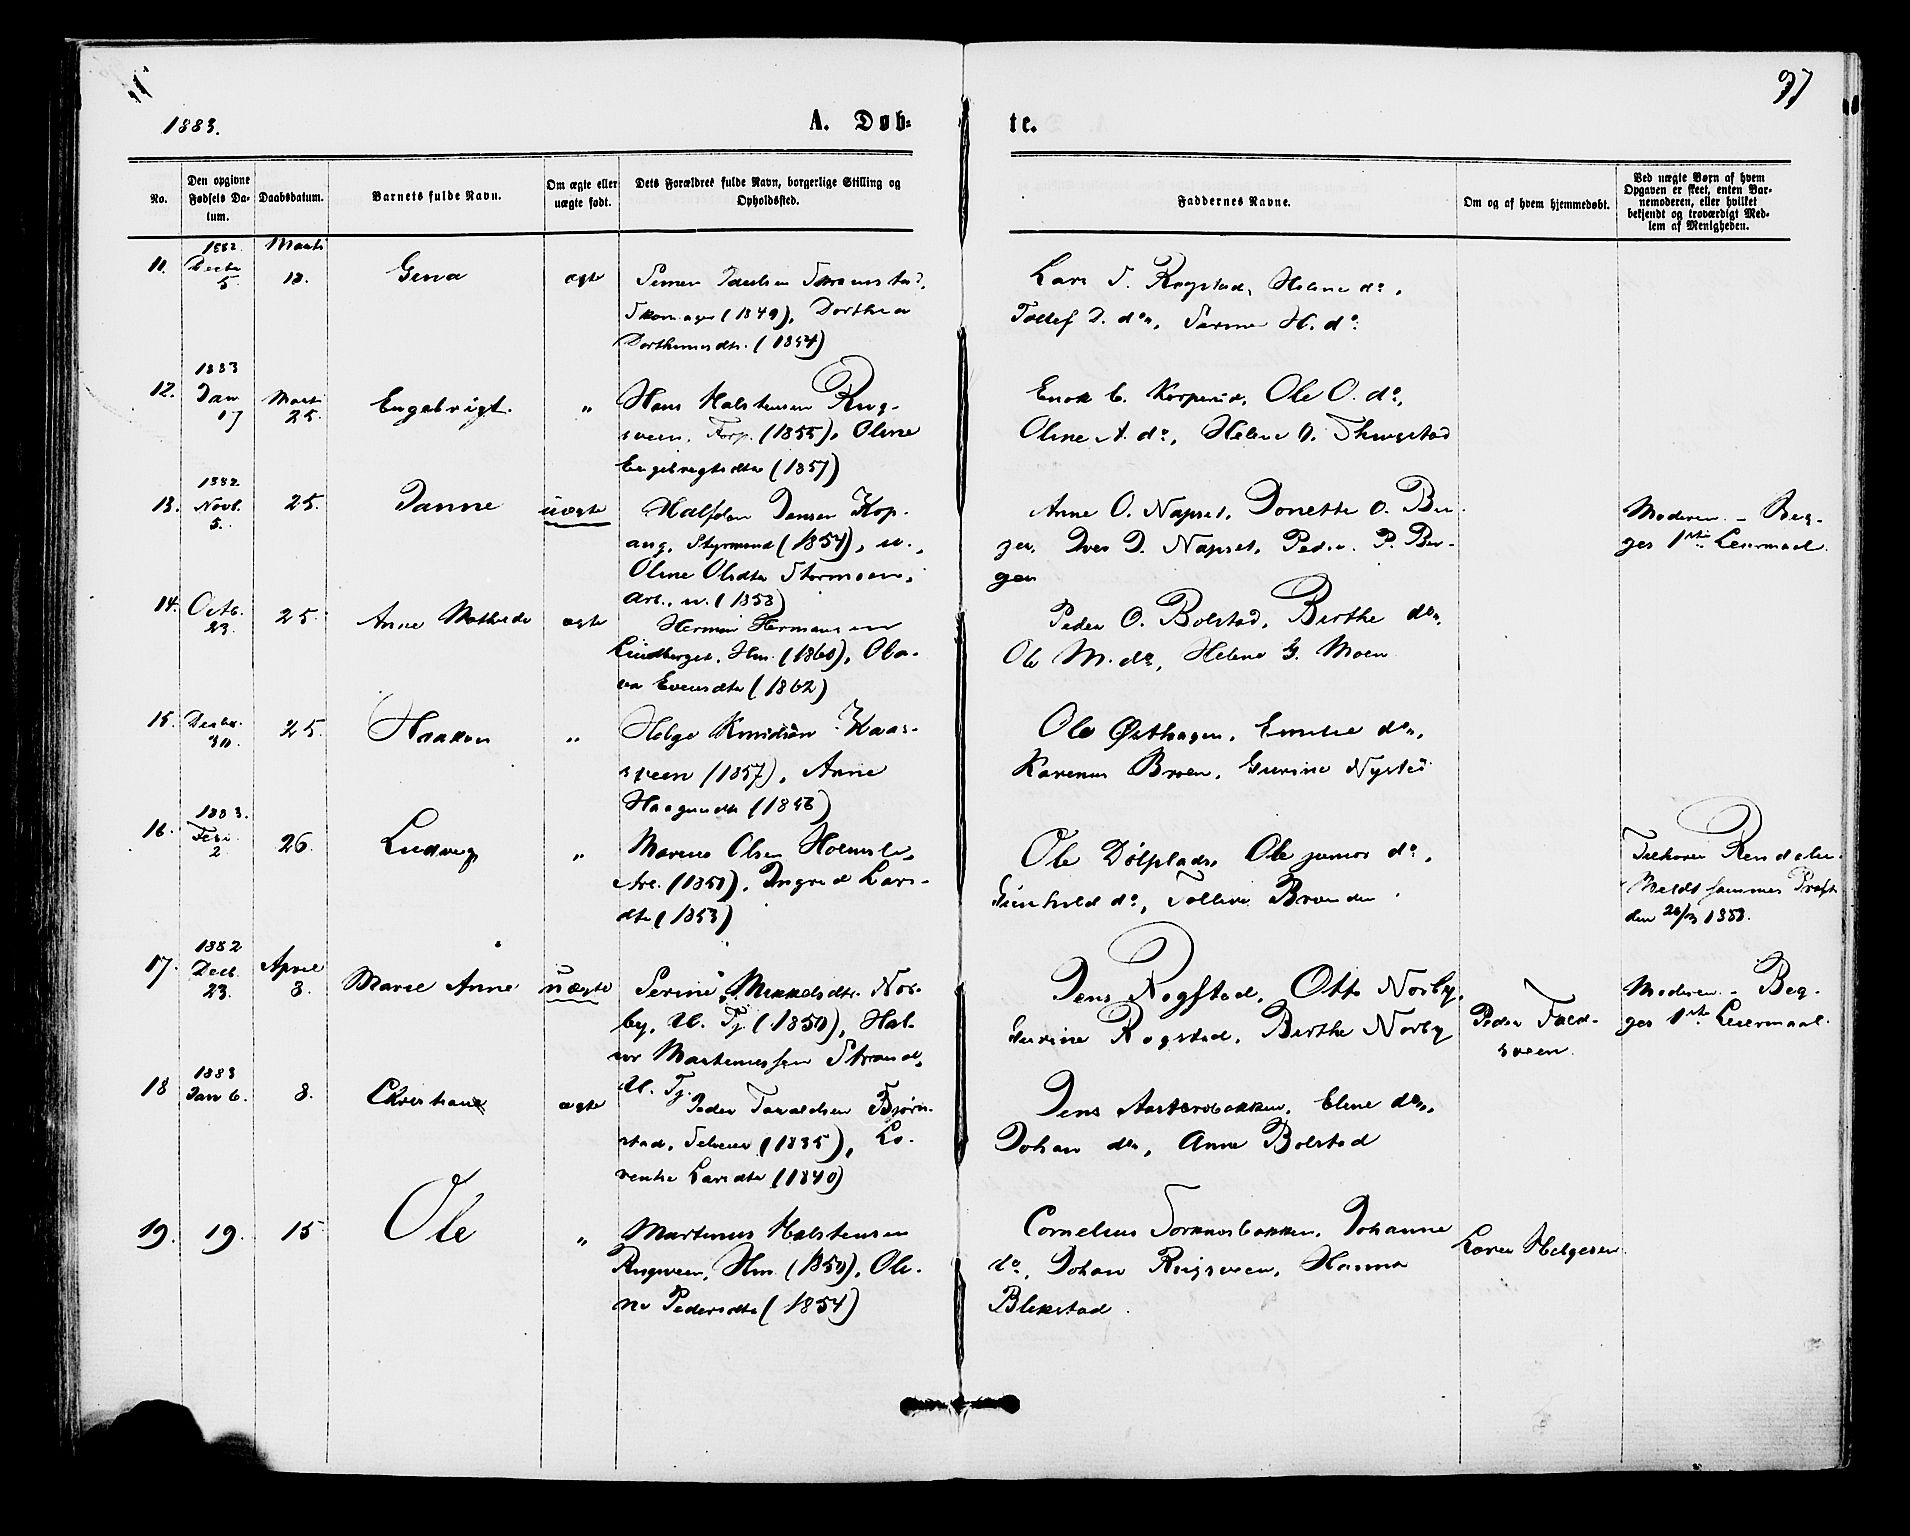 97
1883.
A. Døb-
te.
No.
Den opgivne Fødsels Da-tum.
Daabsdatum.
Barnets fulde Navn.
Om ægte eller uægte født.
Dets Forældres fulde Navn, borgerlige Stilling og Opholdssted.
Faddernes Navne.
Om og af hvem hjemmedøbt.
Ved uægte Børn af hvem Opgaven er skeet, enten Bar-nemoderen, eller hvilket bekjendt og troværdigt Med-lem af Menigheden.
1882 Marts
11. Decbr 5 18. Gina ægte
Skomager (1849), Dorthea
(1854)
Lars S. Rogstad, Helene do,
Tollef D. do, H. do
1883
12. Jan 17 Marts 25. Engebrigt. „ Hans Halstensen Rug-
sveen, Forp. (1855), Oline
Engebrigtsdtr (1857)
Enok E. Ole O. do,
Oline A. do, Helene O.
1882
13. Novb. 5. 25. Janne uægte Halfdan Jensen Kop-
ang, Styrmand (1854), u.,
Oline Olsdtr Stormoen,
Arb., u. (1853)
Anne O. Napset, Jonette O. Ber-
gen, Iver J. Napset, Peder P. Ber-
gen
Moderen. - Beg-
ges 1ste Leiermaal.
14. Octb. 23. 25. Anne Mathilde ægte Herman Hermansen
Lindberget, Hm. (1860), Ola-
va Evensdtr (1862)
Peder O. Bolstad, Berthe do,
Ole M. do, Helene G. Moen
15. Decbr. 30. 25. Haakon „ Helge Knudsen Kaas-
sveen (1857), Anne
Haagensdtr (1856)
Ole Østhagen, Emilie do,
Karenus Broen, Gurine Nysted
1883.
16. Febr. 2 26. Ludvig „ Marius Olsen
Arb. (1850), Ingrid Lars-
dtr (1853)
Ole Dølplads, Ole junior do,
Gunhild do, Broenden
Tilhører Rendalen.
Meldt sammes Præst
den 28/3 1883.
1882
17. Decb. 23. April 8. Marie Anne uægte Serine Mikkelsdtr. Nor-
by, U. Tj. (1850), Hal-
vor Martinussen Strand,
U. Tj.
Jens Rogstad, Otto Norby,
Gurine Rogstad, Berthe Norby
Peder Fald-
sveen.
Moderen. - Beg-
ges 1ste Leiermaal.
1883
18 Jan 6. 8. Christiane ægte Peder Taraldsen Bjørn-
stad, Selveier (1835), Lo-
rentse Larsdtr (1840)
Jens Aasterbakken, Eline do,
Johan do, Anne Bolstad
19. 19. 15 Ole „ Martinus Halstensen
Rugsveen, Hm. (1850), Oli-
ne Pedersdtr (1854)
Cornelius Johanne
do, Johan Rugsveen, Hanna
Blekstad.
Karen Helgesen